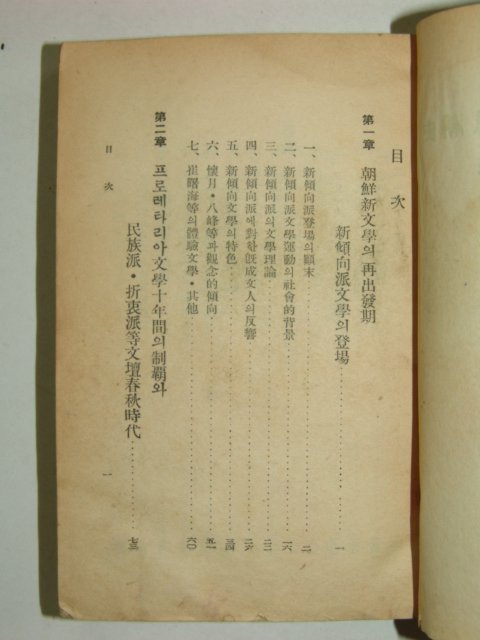 目次
第一章 朝鮮新文學의 再出發期
新傾向派文學의 登場 一
一、新傾向派登場의 顚末 二
二、新傾向派文學運動의 社會的背景 一六
三、新傾向派의 文學理論 二二
四、新傾向派에 對한 旣成文人의 反響 二九
五、新傾向文學의 特色 三四
六、懷月・八峰等과 觀念的傾向 五一
七、崔曙海等의 體驗文學・其他 六〇
第二章 프로레타리아文學十年間의 制覇와
民族派・折衷派等文壇春秋時代 七三
目次 一